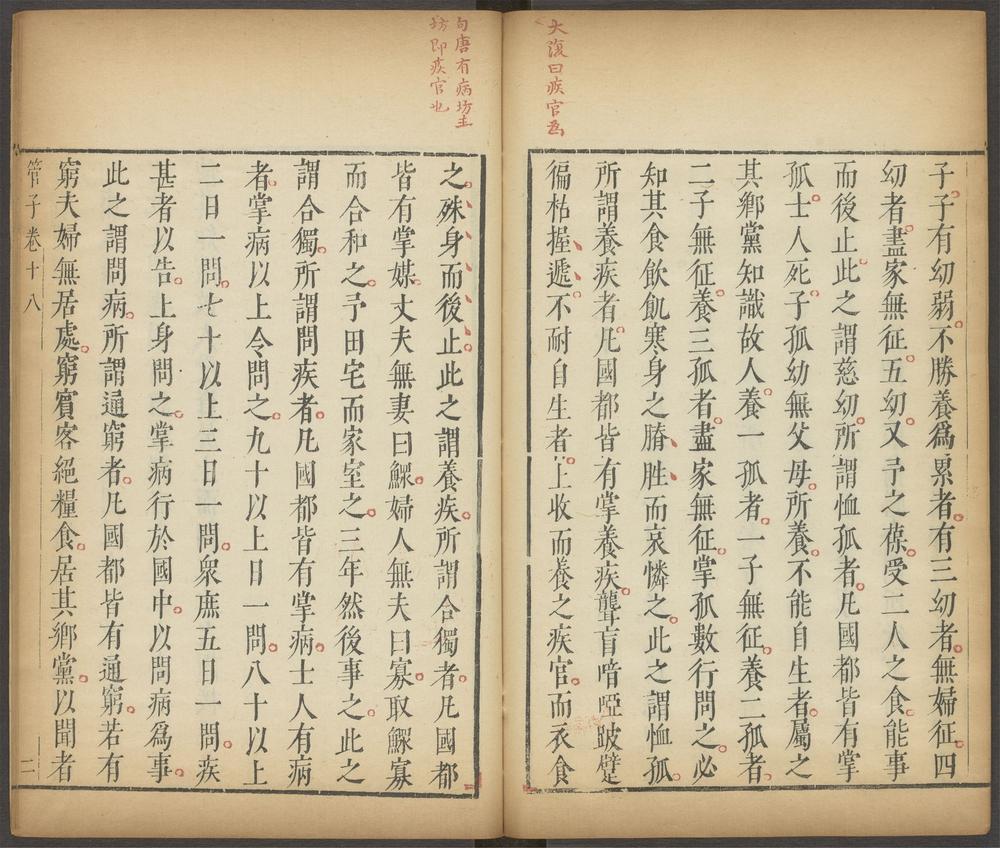 大復曰疾官爲
句唐有病坊主
坊即疾官也
子子有幼弱不勝養爲累者有三幼者無婦征四
幼者盡家無征五幼又予之葆受二人之食能事
而後止此之謂慈幼所謂恤孤者凡國都皆有掌
孤士人死子孤幼無父母所養不能自生者屬之
其鄉黨知識故人養一孤者一子無征養二孤者
二子無征養三孤者盡家無征掌孤數行問之必
知其食飲飢寒身之膌胜而哀憐之此之謂恤孤
所謂養疾者凡國都皆有掌養疾聾盲喑啞跛躄
徧枯握遞不耐自生者上收而養之疾官而衣食
之殊身而後止此之謂養疾所謂合獨者凡國都
皆有掌媒丈夫無妻曰鰥婦人無夫曰寡取鰥寡
而合和之予田宅而家室之三年然後事之此之
謂合獨所謂問疾者凡國都皆有掌病士人有病
者掌病以上令問之九十以上日一問八十以上
二日一問七十以上三日一問衆庶五日一問疾
甚者以告上身問之掌病行於國中以問病爲事
此之謂問病所謂通窮者凡國都皆有通窮若有
窮夫婦無居處窮賔客絕糧食居其鄉黨以聞者
管子卷十八
二